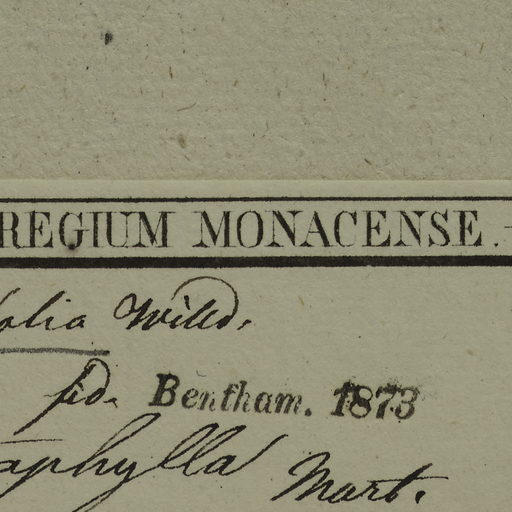 REGIUM MONACENSE.
folia Willd.
fid. Bentham. 1873
aphylla Mart.